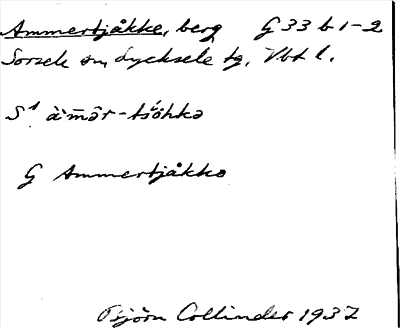 Ammertjåkke, berg G 33 b 1-2
Sorsele sn, Lycksele tg, Vbt l.
S¹ àm̄ər-tšǻhkə
G Ammertjåkko
Björn Collinder 1937